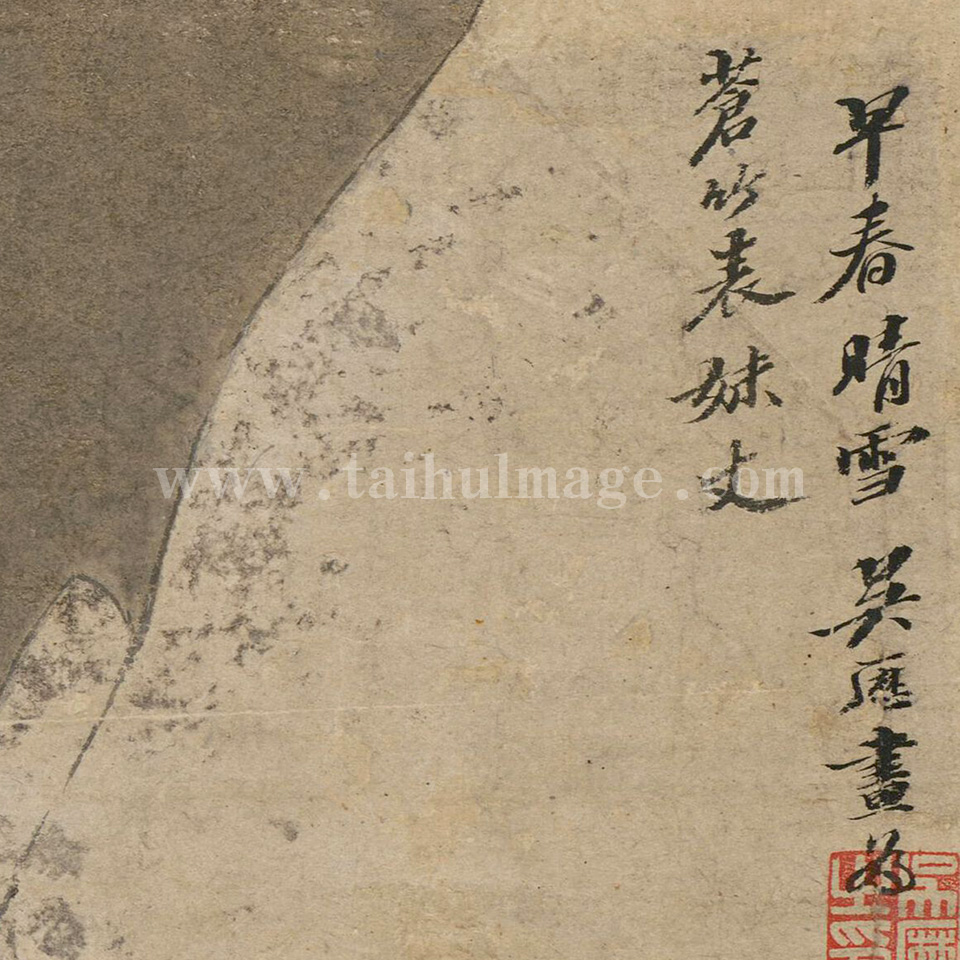 早春晴雪吳歷畫為
蒼竹表妹丈
www.taihuImage.com